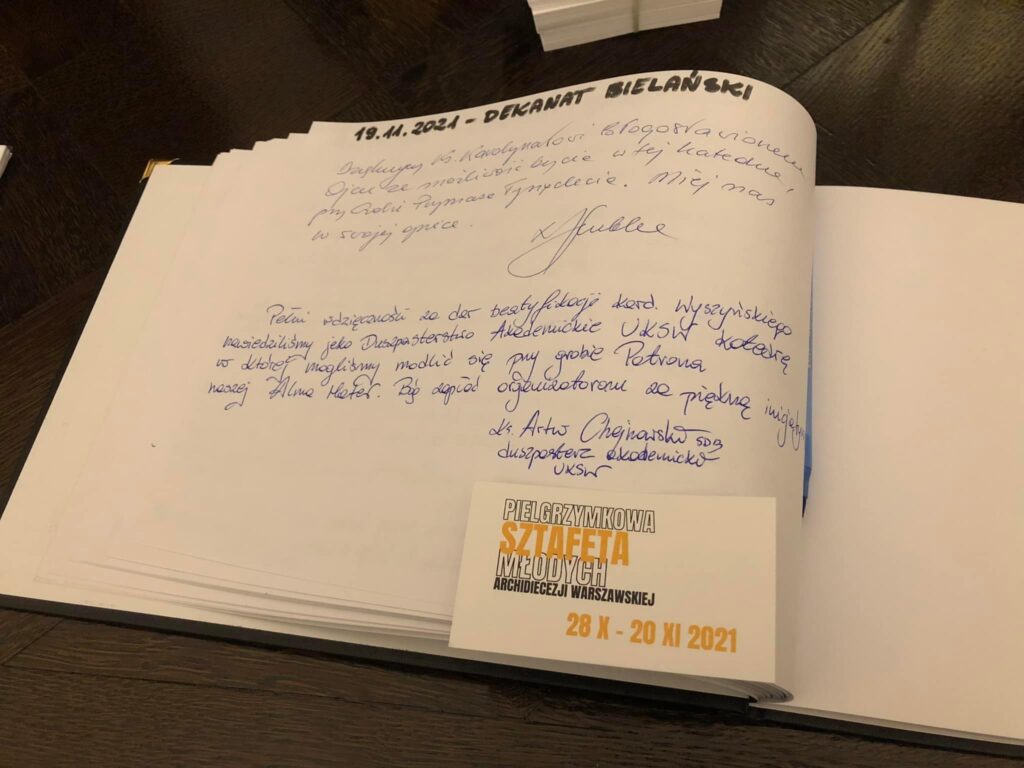 19.11.2021 - DEKANAT BIELAŃSKI
Ks. Kardynałowi Błogosławionemu
Ojcu za możliwość bycia w tej Katedrze,
przy Prymasa Tysiąclecia. Miej nas
w swojej opiece.
Pełni wdzięczności za dar beatyfikacji kard. Wyszyńskiego
nawiedziliśmy jako Duszpasterstwo Akademickie UKSW katedrę
w której mogliśmy modlić się przy grobie Patrona
naszej Alma Mater. Bóg zapłać organizatorom za piękną
ks. Artur Chojnowski SDB
duszpasterz akademicki
UKSW
PIELGRZYMKOWA
SZTAFETA
MŁODYCH
ARCHIDIECEZJI WARSZAWSKIEJ
28 X - 20 XI 2021